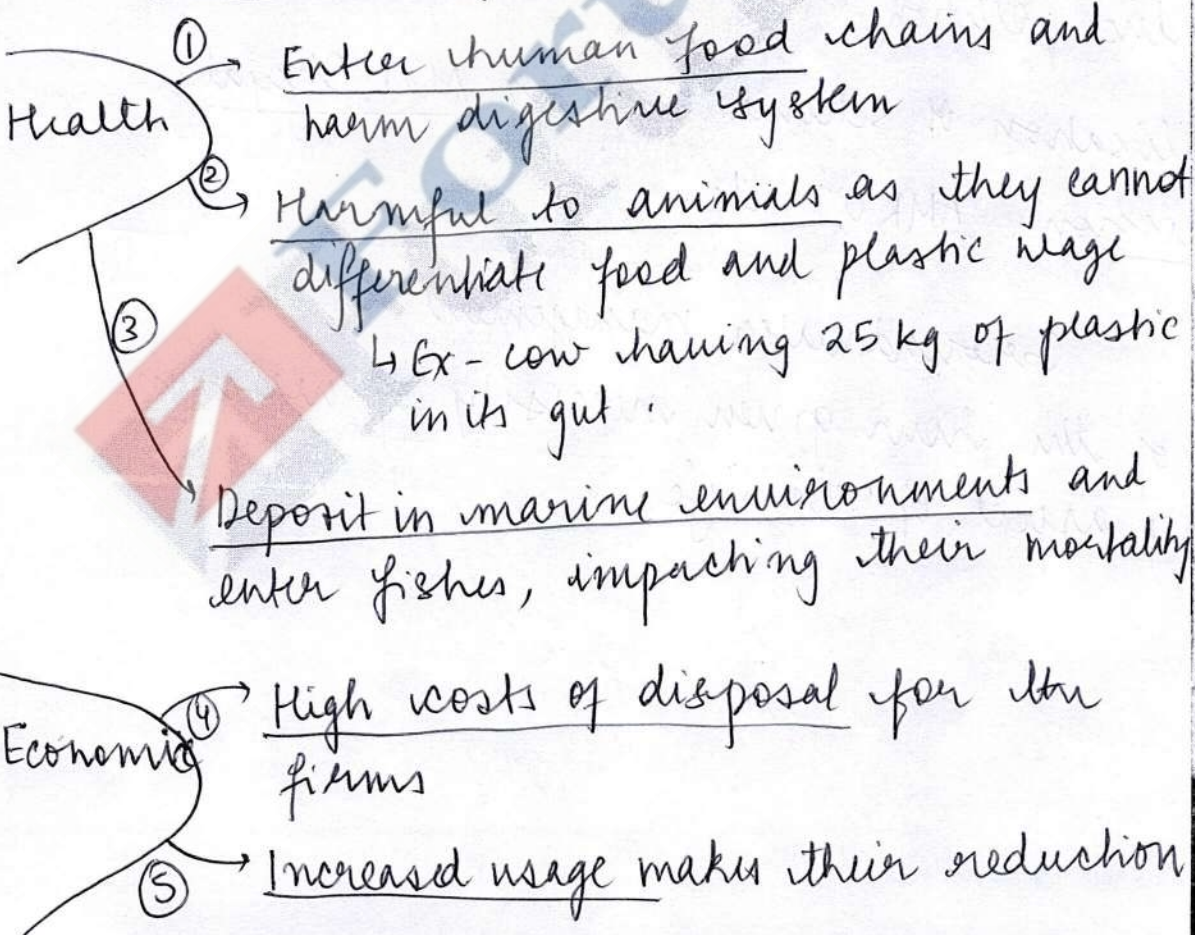 ① Enter human food chains and
Health
harm digestive system
② Harmful to animals as they cannot
differentiate food and plastic
↳ Ex - cow having 25 kg of plastic
in its gut.
③ Deposit in marine environments and
enter fishes, impacting their mortality
④ High costs of disposal for the
Economic
firms
⑤ Increased usage makes their reduction